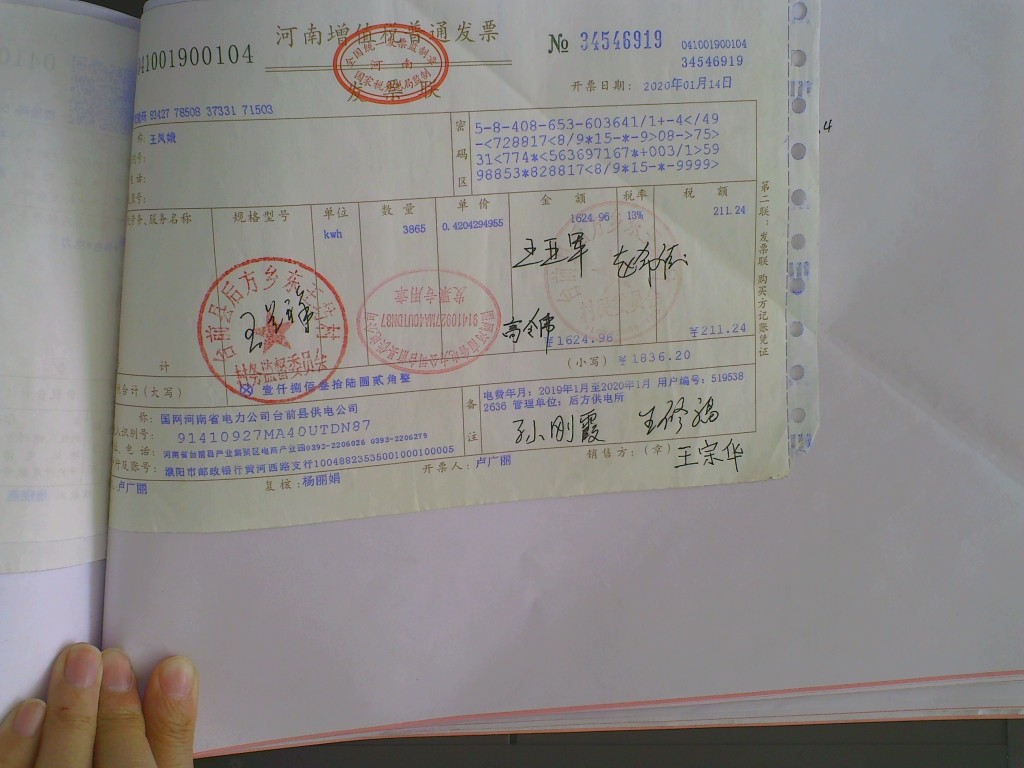 河南增值税普通发票
发票联
041001900104
№ 34546919
041001900104
34546919
开票日期: 2020年01月14日
93427 78508 37331 71503
称: 王凤娥
密码区
5-8-408-653-603641/1+-4</49
-<728817<8/9*15-*-9>08->75>
31<774*<563697167*+003/1>59
98853*828817<8/9*15-*-9999>
服务名称 规格型号 单位 数量 单价 金额 税率 税额
kwh 3865 0.4204294955 1624.96 13% 211.24
王亚军
高令伟
计 ¥1624.96 ¥211.24
合计(大写) ⊗ 壹仟捌佰叁拾陆圆贰角整 (小写) ¥1836.20
称: 国网河南省电力公司台前县供电公司
人识别号: 91410927MA40UTDN87
电话: 河南省台前县产业集聚区电商产业园0393-2206026 0393-2206279
行及账号: 濮阳市邮政银行黄河西路支行100488235350010001000005
备注
电费年月: 2019年1月至2020年1月 用户编号: 519538
2636 管理单位: 后方供电所
孙刚霞 王修福
卢广丽 复核: 杨丽娟 开票人: 卢广丽 销售方: (章) 王宗华
第二联: 发票联 购买方记账凭证
全国统一发票监制章
河南
国家税务总局监制
台前县后方乡东
村务监督委员会
91410927MA40UTDN87
发票专用章
.4